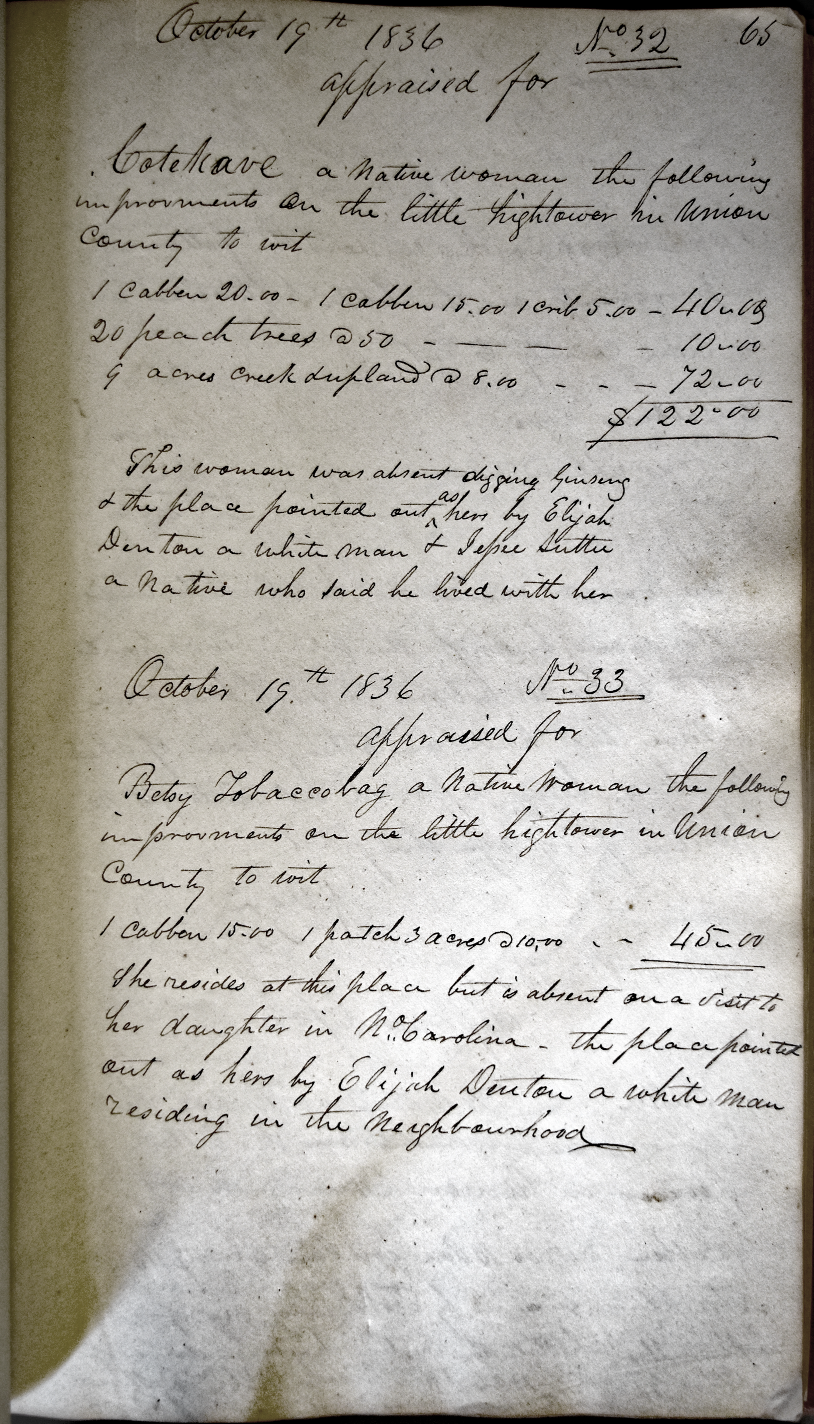 October 19th 1836 No. 32 65
appraised for
Cotekave a Native woman the following
improvments on the little hightower in Union
County to wit
1 cabben 20.00 - 1 cabben 15.00 1 crib 5.00 - 40.00
20 peach trees @ 50 - — — - 10.00
9 acres creek & upland @ 8.00 - - - 72.00
$122.00
This woman was absent digging Ginseng
& the place pointed out as hers by Elijah
Denton a white man & Jessee
a Native who said he lived with her
October 19th 1836 No. 33
appraised for
Betsy Tobaccobag a Native Woman the following
improvments on the little hightower in Union
County to wit
1 cabben 15.00 1 patch 3 acres @ 10.00 - - 45.00
She resides at this place but is absent on a visit to
her daughter in No. Carolina - the place pointed
out as hers by Elijah Denton a white man
residing in the Neighbourhood